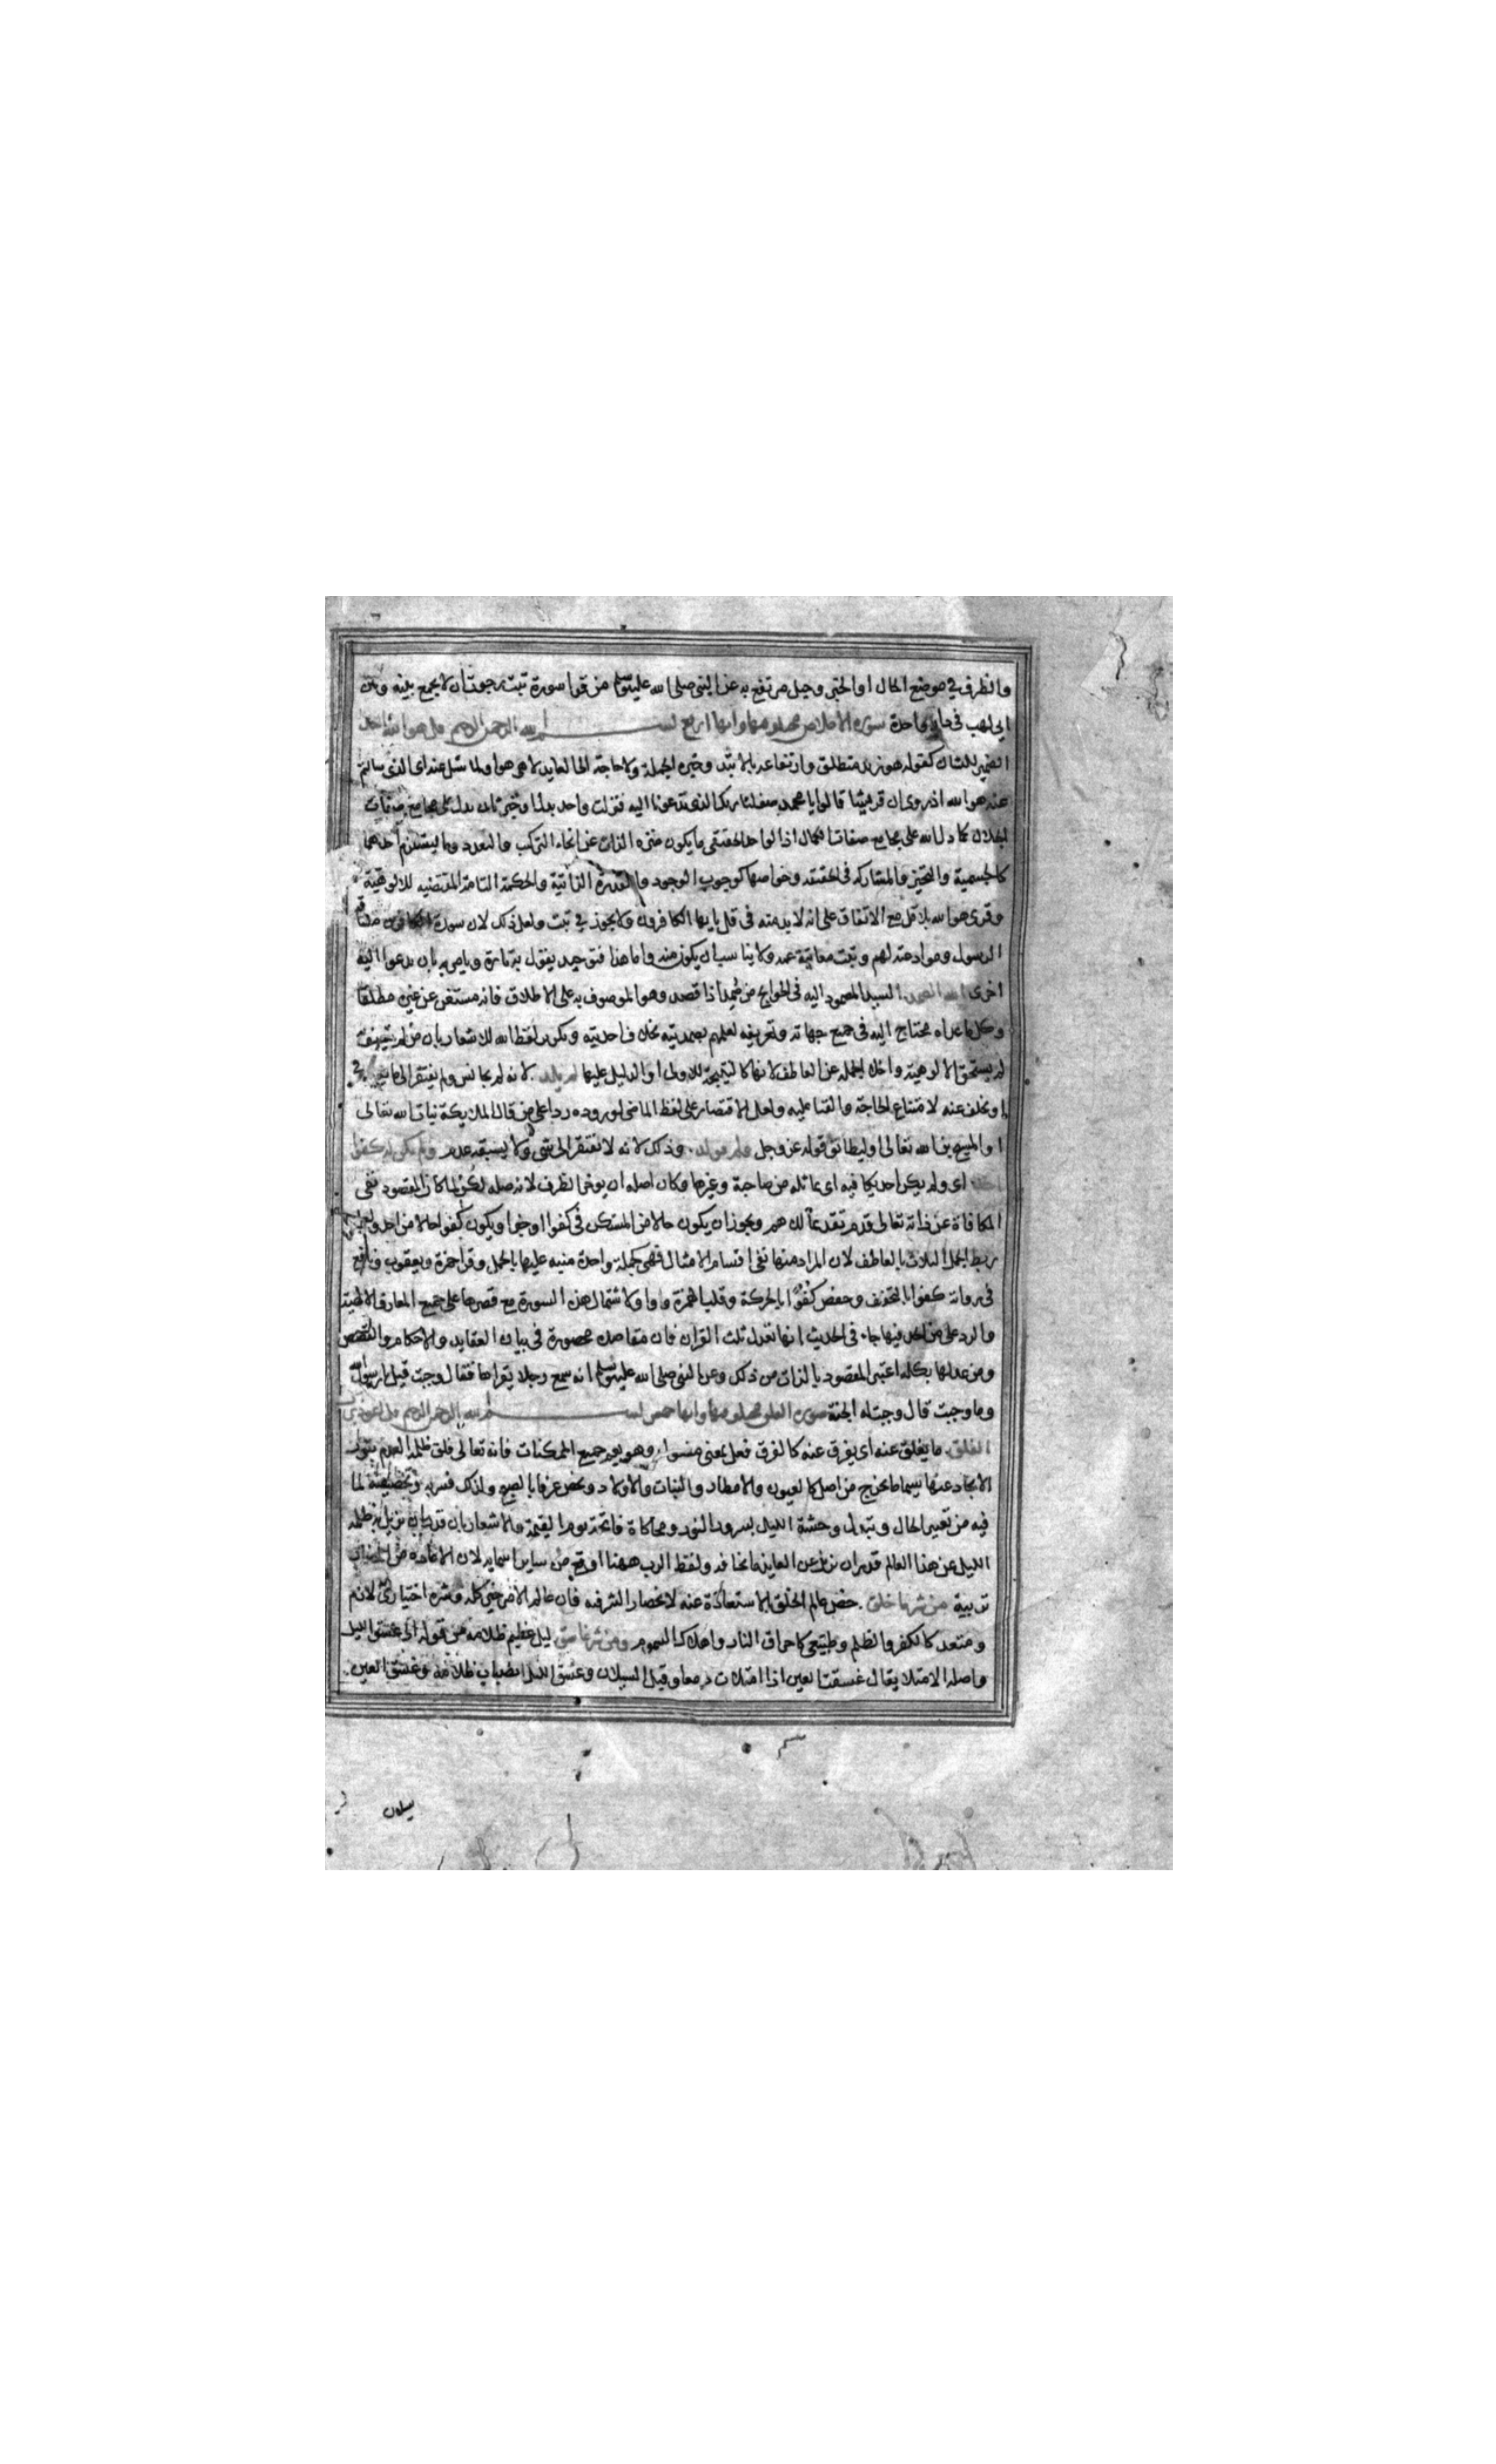 والظرف في موضع الحال او الخبر وحبل مرتفع به عن النبي صلى الله عليه وسلم من قرا سورة تبت رجوت ان لا يجمع بينه وبين
ابي لهب في دار واحدة سورة الاخلاص مختلف فيها وايها اربع بسم الله الرحمن الرحيم قل هو الله احد
الضمير للشان كقوله هو زيد منطلق وارتفاعه بالابتدا وخبره الجملة ولا حاجة الى العايد لانها هي هو او لما سئل عنه اى الذى سالتم
عنه هو الله اذ روى ان قريشا قالوا يا محمد صف لنا ربك الذى تدعونا اليه فنزلت واحد بدل او خبر ثان يدل على مجامع صفات
الجلال كما دل الله على مجامع صفات الكمال اذ الواحد الحقيقى ما يكون منزه الذات عن انحاء التركيب والتعدد وما يستلزم احدهما
كالجسمية والتحيز والمشاركة في الحقيقة وخواصها كوجوب الوجود والقدرة الذاتية والحكمة التامة المقتضيه للالوهية
وقرى هو الله بلا قل مع الاتفاق على انه لا بد منه في قل يا يها الكافرون ولا يجوز في تبت ولعل ذلك لان سورة الكافرون مشاقة
الرسول وموادعته لهم وتبت معاتبة عمه ولا يناسب ان يكون منه واما هذا فتوحيد يقول به تارة ويامر به بان يدعوا اليه
اخرى الله الصمد السيد المصمود اليه في الحوايج من صمد اذا قصد وهو الموصوف به على الاطلاق فانه مستغن عن غيره مطلقا
وكل ما عداه محتاج اليه في جميع جهاته وتعريفه لعلمهم بصمديته بخلاف احديته وتكرير لفظ الله للاشعار بان من لم يتصف به
لم يستحق الالوهية واخلا الجملة عن العاطف لانها كالنتيجة للاولى او الدليل عليها لم يلد لانه لم يجانس ولم يفتقر الى ما يعينه
او يخلف عنه لامتناع الحاجة والفنا عليه ولعل الاقتصار على لفظ الماضى لوروده ردا على من قال الملايكة بنات الله تعالى
او المسيح بن الله تعالى او ليطابق قوله عز وجل ولم يولد وذلك لانه لا يفتقر الى شى ولا يسبقه عدم ولم يكن له كفوا
احد اى ولم يكن احد يكافيه اى يماثله من صاحبة وغيرها وكان اصله ان يوخر الظرف لانه صله لكن لما كان المقصود نفى
المكافاة عن ذاته تعالى قدم تقديما للاهم ويجوز ان يكون حالا من المستكن في كفوا او خبرا ويكون كفوا حالا من احد ولعل
ربط الجمل الثلاث بالعاطف لان المراد منها نفى اقسام الامثال فهى كجملة واحدة منبه عليها بالجمل وقرا حمزة ويعقوب ونافع
في رواية كفوا بالتخفيف وحفص كفوا بالحركة وقلب الهمزة واوا ولاشتمال هذه السورة مع قصرها على جميع المعارف الالهية
والرد على من الحد فيها جا في الحديث انها تعدل ثلث القران فان مقاصده محصورة في بيان العقايد والاحكام والقصص
ومن عدلها بكله اعتبر المقصود بالذات من ذلك وعن النبى صلى الله عليه وسلم انه سمع رجلا يقراها فقال وجبت قيل يا رسول الله
وما وجبت قال وجبت له الجنة سورة الفلق مختلف فيها وايها خمس بسم الله الرحمن الرحيم قل اعوذ برب
الفلق ما يفلق عنه اى يفرق عنه كالفرق فعل بمعنى مفعول وهو يعم جميع الممكنات فانه تعالى فلق ظلمة العدم بنور
الايجاد عنها سيما ما يخرج من اصل كالعيون والامطار والنبات والاولاد ويختص عرفا بالصبح ولذلك فسر به وتخصيصه لما
فيه من تغير الحال وتبدل وحشة الليل بسرور النور ومحاكاة فاتحة يوم القيمة والاشعار بان من قدر ان يزيل به ظلمة
الليل عن هذا العالم قدر ان يزيل عن العايذ ما يخافه ولفظ الرب ههنا اوقع من ساير اسمايه لان الاعاذه من المضار
تربية من شر ما خلق خص عالم الخلق بالاستعاذة عنه لانحصار الشر فيه فان عالم الامر خير كله وشره اختيارى لازم
ومتعد كالكفر والظلم وطبيعى كاحراق النار واهلاك السموم ومن شر غاسق ليل عظيم ظلامه من قوله الى غسق الليل
واصله الامتلا يقال غسقت العين اذا امتلات دمعا وقيل السيلان وغسق الليل انصباب ظلامه وغسق العين
سيلان